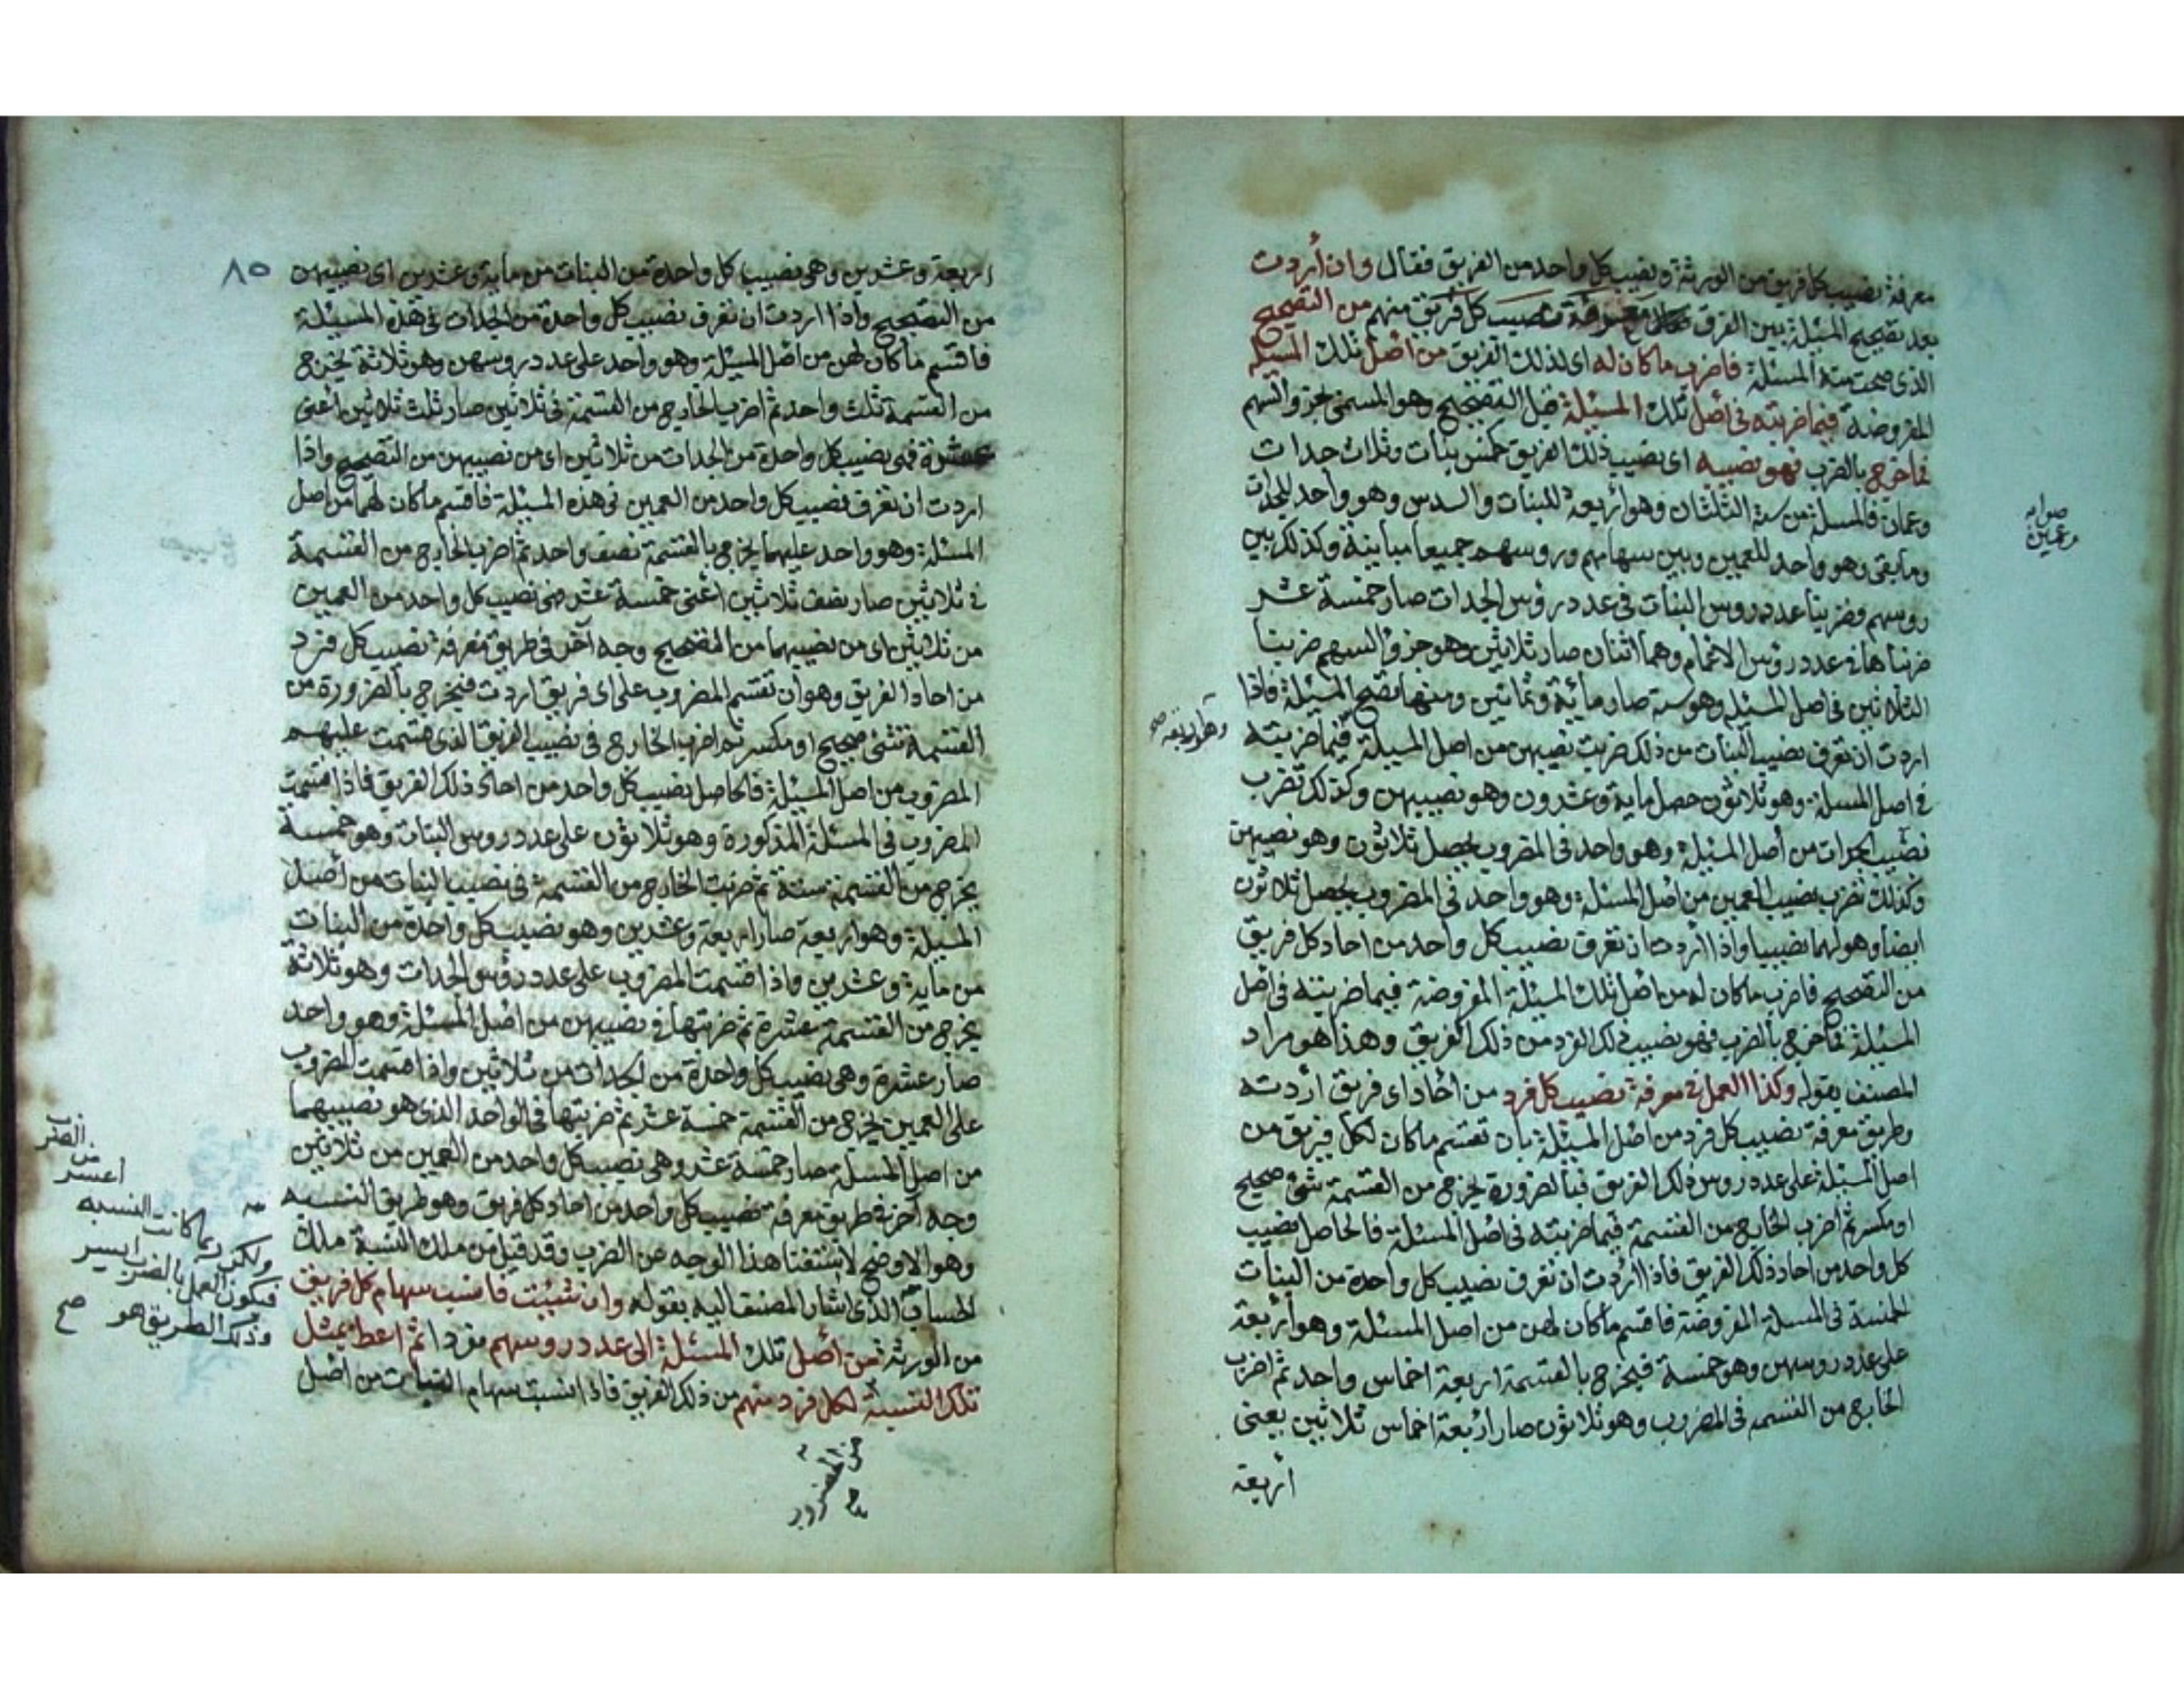 معرفة نصيب كل فريق من الورثة ونصيب كل واحد من الفريق فقال وان أردت
بعد تصحيح المسئلة بين الفرق معرفة نصيب كل فريق منهم من التصحيح
الذى صحت منه المسئلة فاضرب ما كان له اى لذلك الفريق من اصل تلك المسئلة
المفروضة فيما ضربته فى اصل تلك المسئلة قبل التصحيح وهو المسمى بجزو السهم
فما خرج بالضرب فهو نصيبه اى نصيب ذلك الفريق كخمس بنات وثلاث جدات
وعمان فالمسئلة من ستة الثلثان وهو أربعة للبنات والسدس وهو واحد للجدات
وما بقى وهو واحد للعمين وبين سهامهم وروسهم جميعا مباينة وكذلك بين
روسهم وضربنا عدد روس البنات فى عدد رؤس الجدات صار خمسة عشر
ضربناها فى عدد رؤس الاعمام وهما اثنان صار ثلاثين وهو جزؤ السهم ضربنا
الثلاثين فى اصل المسئلة وهو ستة صار مائة وثمانين ومنها تصح المسئلة فاذا
اردت ان تعرف نصيب البنات من ذلك ضربت نصيبهن من اصل المسئلة فيما ضربته
فى اصل المسئلة وهو ثلاثون حصل ماية وعشرون وهو نصيبهن وكذلك تضرب
نصيب الجدات من أصل المسئلة وهو واحد فى المضروب يحصل ثلاثون وهو نصيبهن
وكذلك تضرب نصيب العمين من اصل المسئلة وهو واحد فى المضروب يحصل ثلاثون
ايضا وهو لهما نصيبا واذا أردت ان تعرف نصيب كل واحد من احاد كل فريق
من التصحيح فاضرب ما كان له من اصل تلك المسئلة المفروضة فيما ضربته فى اصل
المسئلة فما خرج بالضرب فهو نصيب ذلك الفرد من ذلك الفريق وهذا هو مراد
المصنف بقوله وكذا العمل فى معرفة نصيب كل فرد من احاد اى فريق اردته
وطريق معرفة نصيب كل فرد من اصل المسئلة بان تقسم ما كان لكل فريق من
اصل المسئلة على عدد روس ذلك الفريق فبالضرورة يخرج من القسمة شئ صحيح
او مكسر ثم اضرب الخارج من القسمة فيما ضربته فى اصل المسئلة فالحاصل نصيب
كل واحد من احاد ذلك الفريق فاذا أردت ان تعرف نصيب كل واحدة من البنات
الخمسة فى المسئلة المفروضة فاقسم ما كان لهن من اصل المسئلة وهو أربعة
على عدد روسهن وهو خمسة فيخرج بالقسمة اربعة اخماس واحد ثم اضرب
الخارج من القسمة فى المضروب وهو ثلاثون صار اربعة اخماس ثلاثين يعنى
أربعة
صوابه
وعمين
وهو اربعة صح
٨٥
اربعة وعشرين وهى نصيب كل واحدة من البنات من ماية وعشرين اى نصيبهن
من التصحيح واذا اردت ان تعرف نصيب كل واحدة من الجدات فى هذه المسئلة
فاقسم ما كان لهن من اصل المسئلة وهو واحد على عدد روسهن وهو ثلاثة يخرج
من القسمة ثلث واحد ثم اضرب الخارج من القسمة فى ثلاثين صار ثلث ثلاثين أعنى
عشرة فهى نصيب كل واحدة من الجدات من ثلاثين اى من نصيبهن من التصحيح واذا
اردت ان تعرف نصيب كل واحد من العمين فى هذه المسئلة فاقسم ما كان لهما من اصل
المسئلة وهو واحد عليهما يخرج بالقسمة نصف واحد ثم اضرب الخارج من القسمة
فى ثلاثين صار نصف ثلاثين أعنى خمسة عشر فهى نصيب كل واحد من العمين
من ثلاثين اى من نصيبهما من التصحيح وجه آخر فى طريق معرفة نصيب كل فرد
من احاد الفريق وهو ان تقسم المضروب على اى فريق اردت فيخرج بالضرورة من
القسمة شئ صحيح او مكسر ثم اضرب الخارج فى نصيب الفريق الذى قسمت عليهم
المضروب من اصل المسئلة فالحاصل نصيب كل واحد من احاد ذلك الفريق فاذا قسمت
المضروب فى المسئلة المذكورة وهو ثلاثون على عدد روس البنات وهو خمسة
يخرج من القسمة ستة ثم ضربت الخارج من القسمة فى نصيب البنات من أصل
المسئلة وهو اربعة صار اربعة وعشرين وهو نصيب كل واحدة من البنات
من ماية وعشرين واذا قسمت المضروب على عدد رؤس الجدات وهو ثلاثة
يخرج من القسمة عشرة ثم ضربتها فى نصيبهن من اصل المسئلة وهو واحد
صار عشرة وهى نصيب كل واحدة من الجدات من ثلاثين واذا قسمت المضروب
على العمين يخرج من القسمة خمسة عشر ثم ضربتها فى الواحد الذى هو نصيبهما
من اصل المسئلة صار خمسة عشر وهى نصيب كل واحد من العمين من ثلاثين
وجه آخر فى طريق معرفة نصيب كل واحد من احاد كل فريق وهو طريق النسبة
وهو الاوضح لاستغنا هذا الوجه عن الضرب وقد قيل من ملك النسبة ملك
الحساب الذى اشار المصنف اليه بقوله وان شئت فانسب سهام كل فريق
من الورثة من أصل تلك المسئلة الى عدد روسهم مفردا ثم اعط بمثل
تلك النسبة لكل فرد منهم من ذلك الفريق فاذا نسبت سهام البنات من اصل
من المضروب
صح
ولكن ربما كانت النسبة
أعسر
من
الضرب
فيكون العمل بالضرب ايسر
وذلك الطريق هو صح